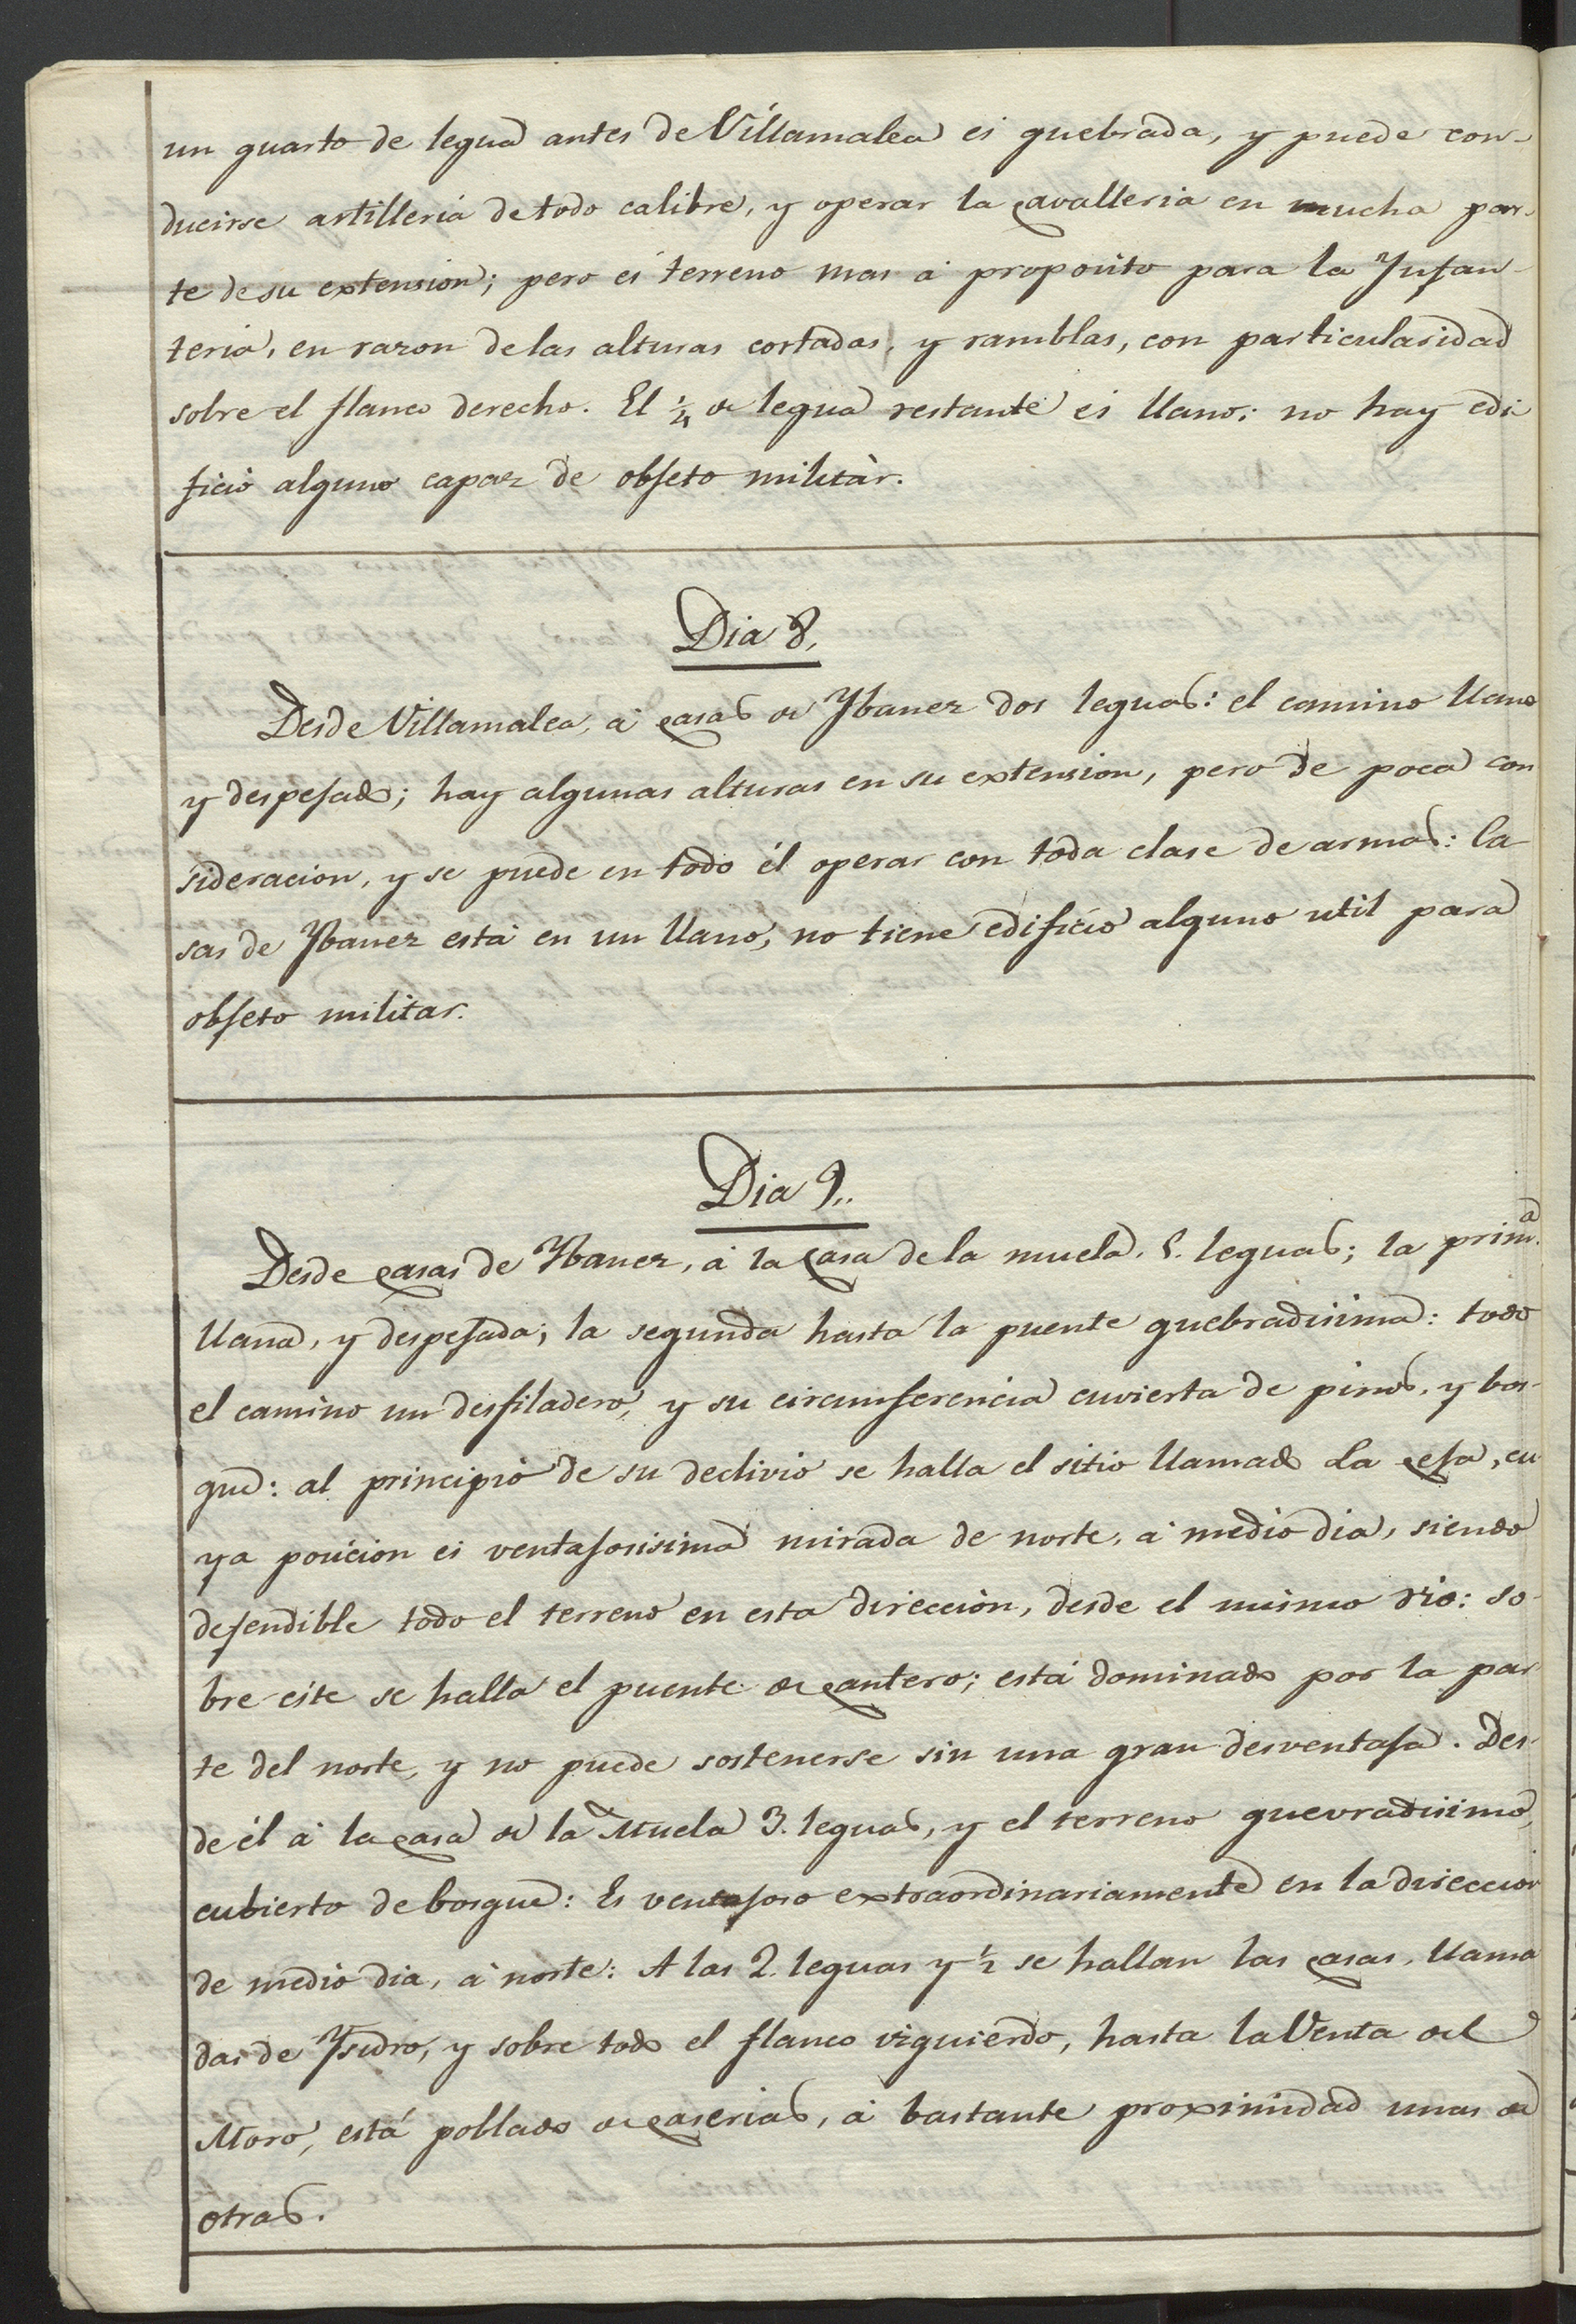 un quarto de legua antes de Villamalea es quebrada, y puede con-
ducirse artilleria de todo calibre, y operar la cavalleria en mucha par-
te de su extension; pero es terreno mas á proposito para la Ynfan-
teria, en razon de las alturas cortadas, y ramblas, con particularidad
sobre el flanco derecho. El ¼ de legua restante es llano; no hay edi
ficio alguno capaz de objeto militàr.
Dia 8,
Desde Villamalea, á casas de Ybanez dos leguas: el camino llano
y despejado; hay algunas alturas en su extension, pero de poca con
sideracion, y se puede en todo él operar con toda clase de armas: Ca-
sas de Ybanez está en un llano, no tiene edificio alguno util para
objeto militar.
Dia 9..
Desde casas de Ybanez, á la casa de la muela, 5. leguas; la prim.ª
llana, y despejada; la segunda hasta la puente quebradisima: todo
el camino un desfiladero, y su circunferencia cuvierta de pinos, y bos-
que: al principio de su declivio se halla el sitio llamado La ceja, cu
ya posicion es ventajosisima mirada de norte, á medio dia, siendo
defendible todo el terreno en esta direccion, desde el mismo rio: so-
bre este se halla el puente de cantero; está dominado por la par
te del norte, y no puede sostenerse sin una gran desventaja. Des-
de él á la casa de la Muela 3. leguas, y el terreno quevradisimo,
cubierto de bosque: Es ventajoso extraordinariamente en la direccion
de medio dia, á norte: A las 2. leguas y ½ se hallan las casas, llama
das de Ysidro, y sobre todo el flanco yzquierdo, hasta la Venta del
Moro, está poblado de caserias, á bastante proximidad unas de
otras.